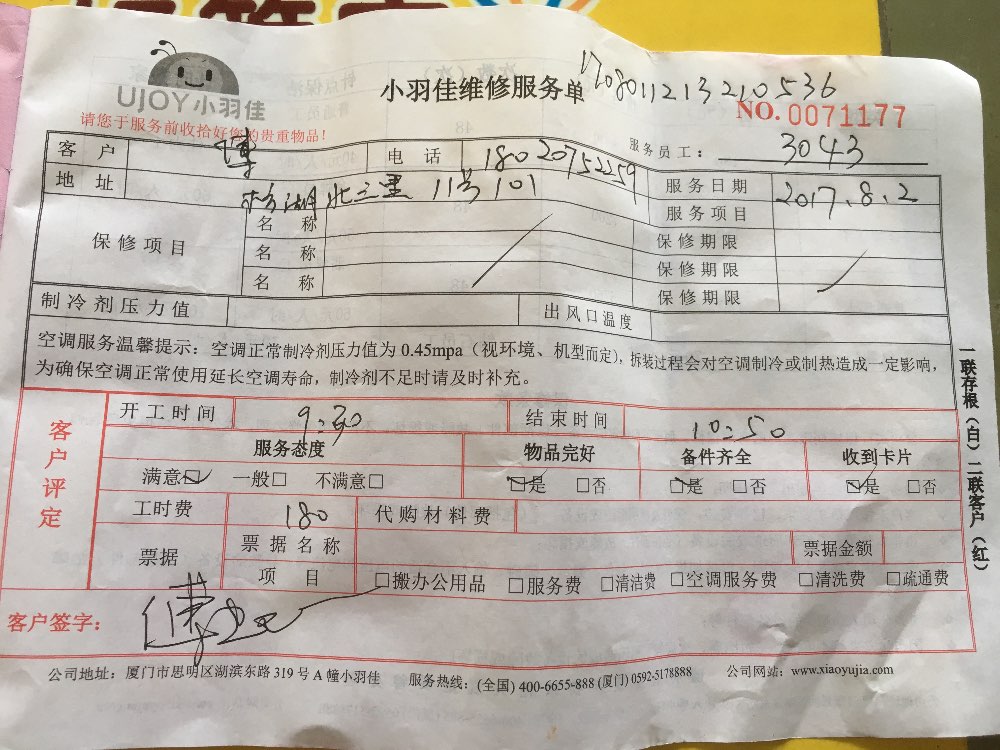 UJOY小羽佳
小羽佳维修服务单
1708011213210536
NO. 0071177
请您于服务前收拾好您的贵重物品!
服务员工: 3043
客户 电话 18020752259
服务日期 2017.8.2
地址 北三里 11号 101
服务项目
保修项目 名称 保修期限
名称 保修期限
名称 保修期限
制冷剂压力值 出风口温度
空调服务温馨提示:空调正常制冷剂压力值为 0.45mpa(视环境、机型而定),拆装过程会对空调制冷或制热造成一定影响,
为确保空调正常使用延长空调寿命,制冷剂不足时请及时补充。
客户评定
开工时间 9:30 结束时间 10:50
服务态度 物品完好 备件齐全 收到卡片
满意☑ 一般□ 不满意□ ☑是 □否 ☑是 □否 ☑是 □否
工时费 180 代购材料费
票据 票据名称 票据金额
项目 □搬办公用品 □服务费 □清洁费 □空调服务费 □清洗费 □疏通费
客户签字:
一联存根(白)二联客户(红)
公司地址:厦门市思明区湖滨东路 319 号 A 幢小羽佳 服务热线:(全国) 400-6655-888 (厦门) 0592-5178888 公司网站:www.xiaoyujia.com